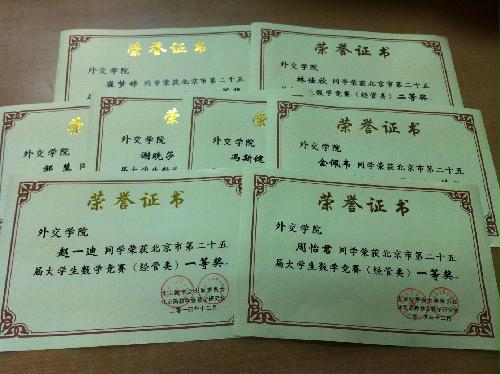 荣誉证书
外交学院
崔梦婷 同学荣获北京市第二十五
荣誉证书
外交学院
林佳欣 同学荣获北京市第二十五
大学生数学竞赛（经管类）二等奖
荣
外交学院
邹慧
荣
外交学院
谢晓莎
届大学生数学
荣
外交学院
冯斯健
荣誉证书
外交学院
金佩韦 同学荣获北京市第二十五
荣誉证书
外交学院
赵一迪 同学荣获北京市第二十五
届大学生数学竞赛（经管类）一等奖。
二〇一四年十二月
荣誉证书
外交学院
周怡君 同学荣获北京市第二十五
届大学生数学竞赛（经管类）一等奖。
二〇一四年十二月